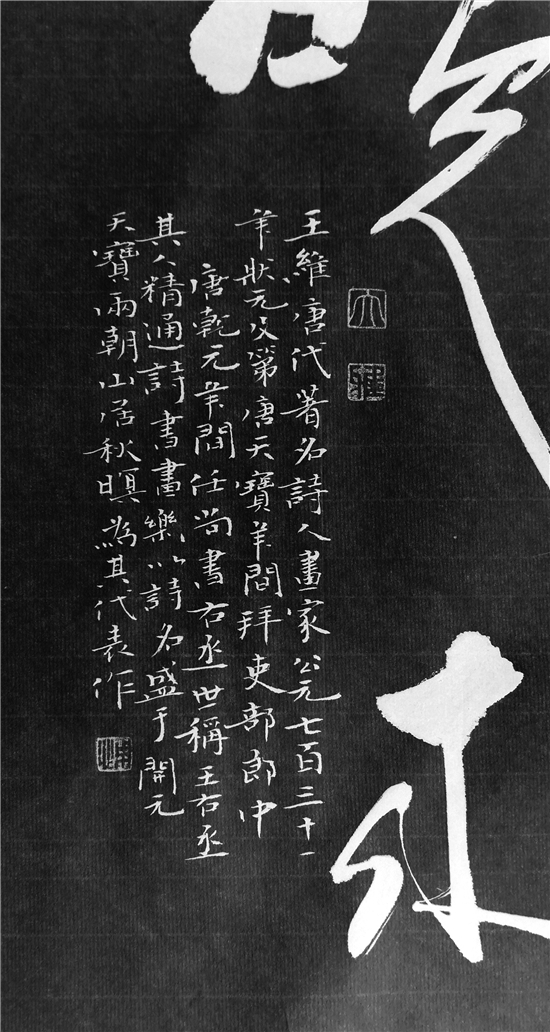 王維唐代著名詩人畫家公元七百三十一
年狀元及第唐天寶年間拜吏部郎中
唐乾元年間任尚書右丞世稱王右丞
其人精通詩書畫樂以詩名盛于開元
天寶兩朝山居秋暝為其代表作